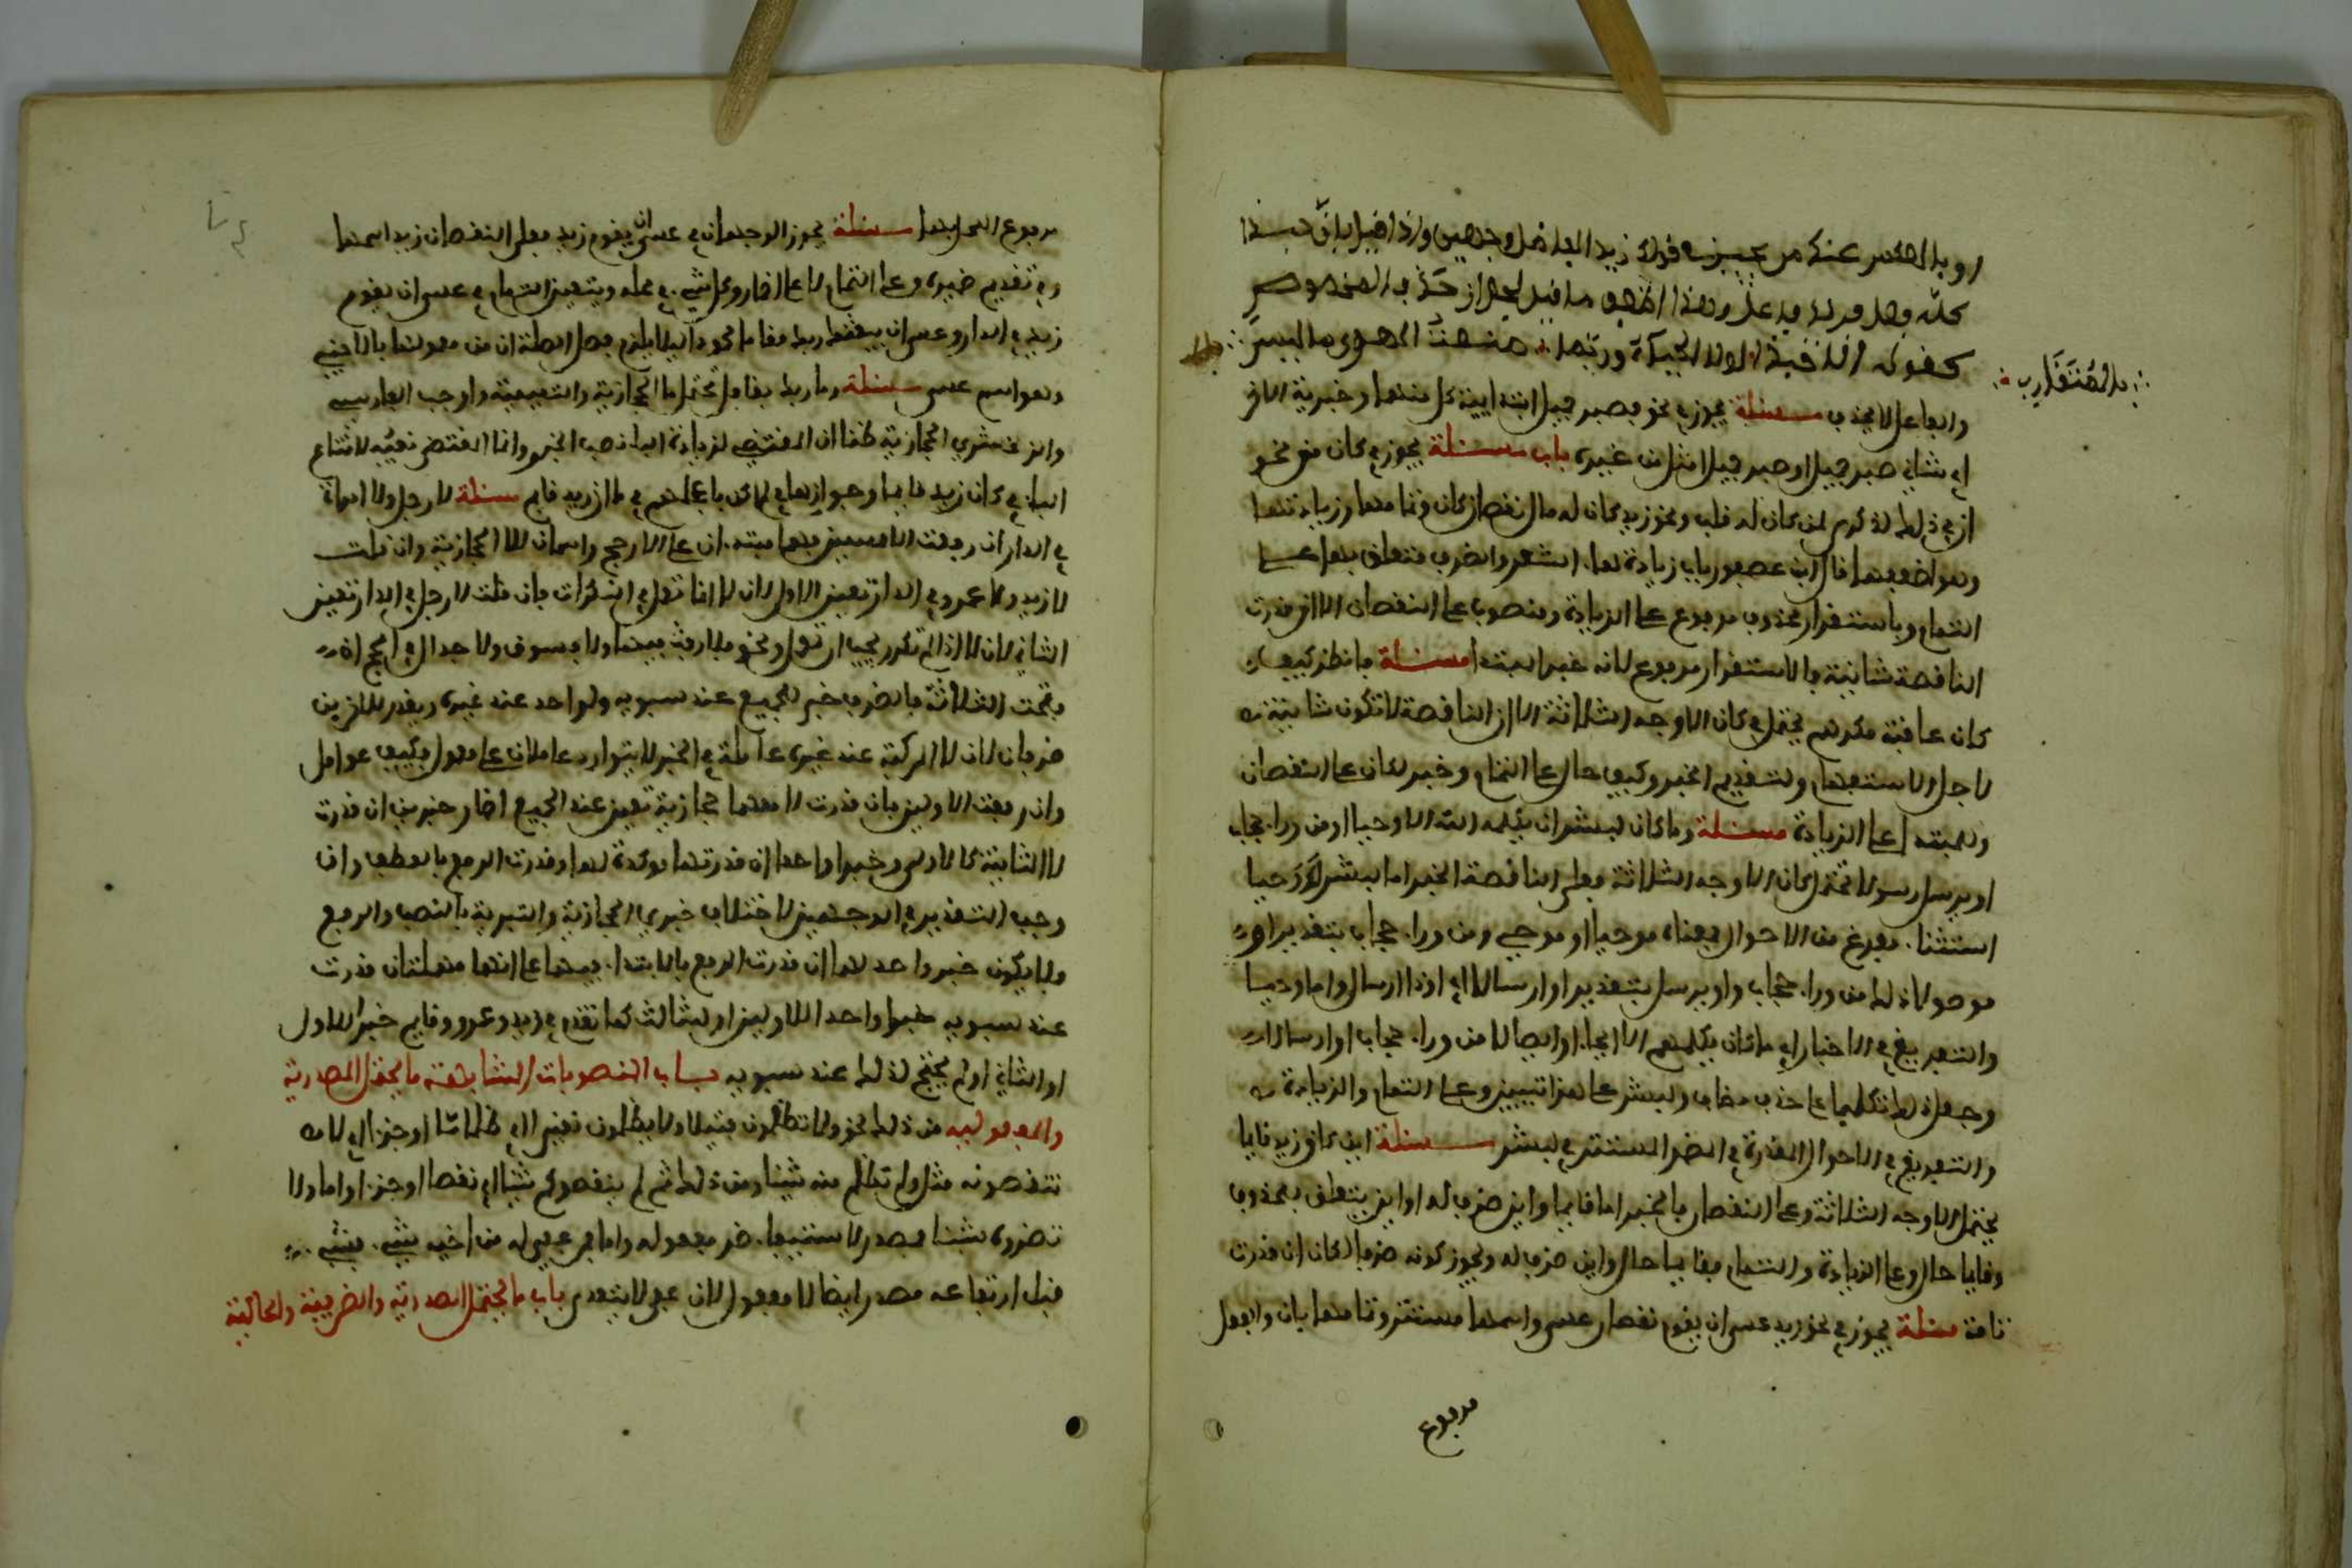 او بالعكس عند من يجيز في قولك زيد الفاضل وجهين واذا قيل بان حبذا
كله فعل فزيد فاعل وهذا اضعف ما قيل لجواز حذف المخصوص
كقوله الا حبذا لولا الحياء وربما منحت الهوى ما ليس
بالمتقارب
والفاعل لا يحذف مسئلة يجوز في نحو فصبر جميل ابتدايية كل منهما وخبرية الاخر
اي شاني صبر جميل او صبر جميل امثل من غيره باب مسئلة يجوز في كان من نحو
ان في ذلك لذكرى لمن كان له قلب ونحو زيد كان له مال نقصان كان وتمامها وزيادتها
وهو اضعفها قال ابن عصفور باب زيادتها الشعر والظرف متعلق بها على
التمام وباستقرار محذوف مرفوع على الزيادة ومنصوب على النقصان الا ان قدرت
الناقصة شانية فالاستقرار مرفوع لانه خبر المبتدا مسئلة فانظر كيف
كان عاقبة مكرهم يحتمل في كان الاوجه الثلاثة الا ان الناقصة لا تكون شانية
لاجل الاستفهام ولتقديم الخبر وكيف حال على التمام وخبر لكان على النقصان
وللمبتدا على الزيادة مسئلة وما كان لبشر ان يكلمه الله الا وحيا او من وراء حجاب
او يرسل رسولا تحتمل كان الاوجه الثلاثة فعلى الناقصة الخبر اما لبشر ووحيا
استثناء مفرغ من الاحوال فمعناه موحيا او موحى ومن وراء حجاب بتقدير او
موصولا ذلك من وراء حجاب واو يرسل بتقدير او ارسالا اي او ذا ارسال واما وحيا
والتفريغ في الاخبار اي ما كان يكلمهم الا ايحاء او ايصالا من وراء حجاب او ارسالا
وجعل ذلك تكليما على حذف مضاف ولبشر على هذا تبيين وعلى التمام والزيادة
والتفريغ في الاحوال المقدرة في الضمير المستتر في لبشر مسئلة اين كان زيد قايما
يحتمل الاوجه الثلاثة وعلى النقصان فالخبر اما قايما واين ظرف له او اين يتعلق بمحذوف
وقايما حال وعلى الزيادة والتمام فقايما حال واين ظرف له ويجوز كونه ظرفا لكان ان قدرت
تامة مسئلة يجوز في نحو زيد عسى ان يقوم نقصان عسى واسمها مستتر وتمامها بان والفعل
مرفوع
مرفوع المحل بها مسئلة يجوز الوجهان في عسى ان يقوم زيد فعلى النقصان زيد اسمها
وفي تقديم خبره وعلى التمام لا على اضمار وكل شيء في محله ويتعين التمام في عسى ان يقوم
زيد في الدار وعسى ان يبعثك ربك مقاما محمودا ليلا يلزم فصل الصلة ان من معمولها بالاجنبي
وهو اسم عسى مسئلة وما ربك بغافل تحتمل ما الحجازية والتميمية واوجب الفارسي
والزمخشري الحجازية ظنا ان المقتضي لزيادة الباء نصب الخبر وانما المقتضى نفيه لامتناع
الباء في كان زيد قايما وجوازها في لم اكن باعجلهم في ما ان زيد قايم مسئلة لا رجل ولا امراة
في الدار ان رفعت الاسمين فهما مبتدءان على الارجح واسمان للا الحجازية وان قلت
لا زيد ولا عمرو في الدار تعين الاول لان لا انما تعمل في النكرات فان قلت لا رجل في الدار تعين
الثاني لان لا اذا لم تكرر يجب ان تعمل ونحو فلا رفث فيهما ولا فسوق ولا جدال في الحج ان
فتحت الثلاثة فالظرف خبر للجميع عند سيبويه ولواحد عند غيره ويقدر للاخرين
ظرفان لان لا المركبة عند غيره عاملة في الخبر لا يتوارد عاملان على معمول فكيف عوامل
وان رفعت الاولين فان قدرت لا معهما حجازية تعين عند الجميع اضمار خبرين ان قدرت
لا الثانية كالاولى وخبرا واحدا ان قدرتها موكدة لها وقدرت الرفع بالعطف وان
وجب التقدير في الوجهين لاختلاف خبري الحجازية والتبرية بالنصب والرفع
فلا يكون خبر واحد لهما ان قدرت الرفع بالابتداء فيهما على انهما مهملتان قدرت
عند سيبويه خبرا واحدا للاولين او للثالث كما تقدم في زيد وعمرو قايم خبرا للاول
او الثاني ولم يحتج لذلك عند سيبويه باب المنصوبات المتشابهة ما يحتمل المصدرية
والمفعولية من ذلك نحو ولا تظلمون فتيلا ولا يظلمون نقيرا اي ظلما ما او خيرا اي لا
تنقصونه مثل ولم تظلم منه شيئا ومن ذلك ثم لم ينقصوكم شيئا اي نقصا او خيرا واما ولا
تضروه شيئا فمصدر لاستيفاء ضر مفعوله واما فمن عفي له من اخيه شيء فشيء
قبل ارتفاعه مصدر ايضا لا مفعول لان عفى لا يتعدى باب ما يحتمل المصدرية والظرفية والحالية